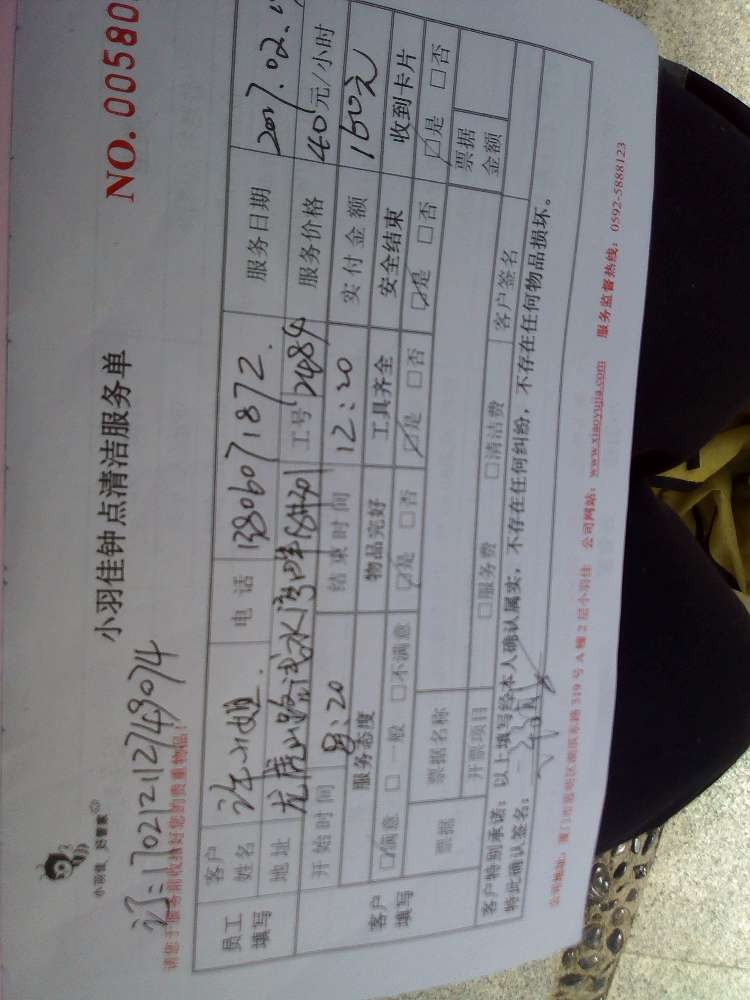 小羽佳 好管家
小羽佳钟点清洁服务单
NO. 00580
订:170212112749074
请您于服务前收拾好您的贵重物品!
员工填写
客户姓名 许小姐 电话 13806071872 服务日期 2017.02.
地址 龙虎山路浅水湾畔 工号 2484 服务价格 40元/小时
开始时间 8:20 结束时间 12:20 实付金额 160元
客户填写
服务态度 物品完好 工具齐全 安全结束 收到卡片
☑满意 □一般 □不满意 ☑是 □否 ☑是 □否 ☑是 □否 ☑是 □否
票据 票据名称 票据金额
开票项目 □服务费 □清洁费 客户签名
客户特别承诺:以上填写经本人确认属实,不存在任何纠纷,不存在任何物品损坏。
特此确认签名:
公司地址:厦门市思明区湖滨东路319号A幢2层小羽佳 公司网站:www.xiaoyujia.com 服务监督热线:0592-5888123